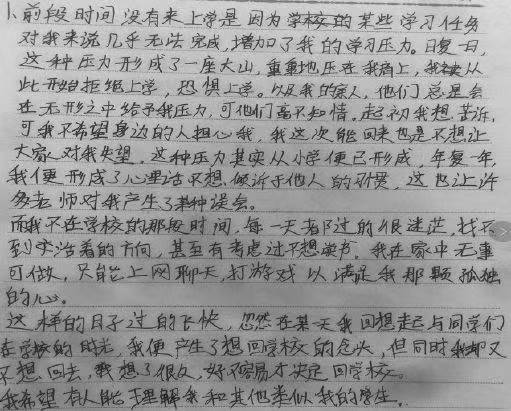 1、前段时间没有来上学是因为学校的某些学习任务
对我来说几乎无法完成，增加了我的学习压力。日复一日，
这种压力形成了一座大山，重重地压在我肩上，我从
此开始拒绝上学，恐惧上学。以及我的家人，他们总是会
在无形之中给予我压力，可他们毫不知情。起初我想苦诉，
可我不希望身边的人担心我，我这次能回来也是不想让
大家对我失望。这种压力其实从小学便已形成，年复一年，
我便形成了心里话不想倾诉于他人的习惯，这也让许
多老师对我产生了某种误会。
而我不在学校的那段时间，每一天都过的很迷茫，找不
到生活着的方向，甚至有考虑过不想读书。我在家中无事
可做，只能上网聊天，打游戏以满足我那颗孤独
的心。
这样的日子过的飞快，忽然在某天我回想起与同学们
在学校的时光，我便产生了想回学校的念头，但同时我却又
不想回去，我想了很久，好不容易才决定回学校。
我希望有人能理解我和其他类似我的学生。